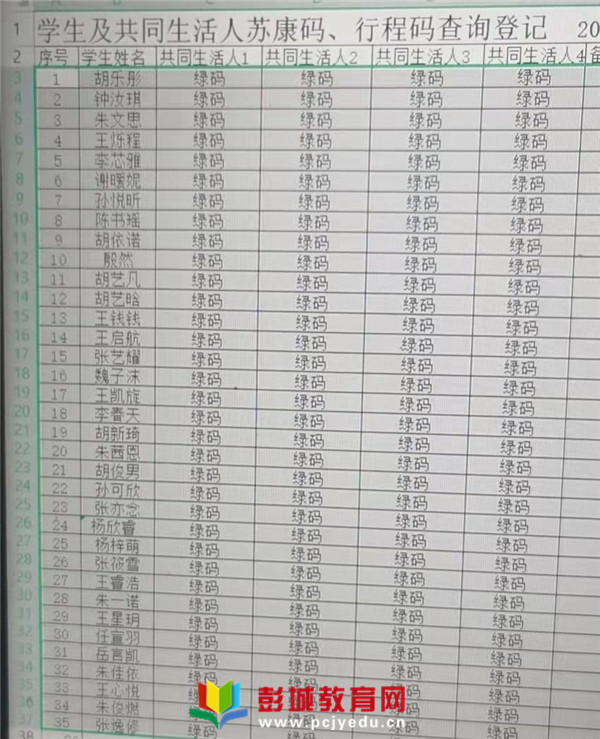 1 学生及共同生活人苏康码、行程码查询登记 20
2 序号 学生姓名 共同生活人1 共同生活人2 共同生活人3 共同生活人4 备
3 1 胡乐彤 绿码 绿码 绿码 绿码
4 2 钟汝琪 绿码 绿码 绿码 绿码
5 3 朱文思 绿码 绿码 绿码 绿码
6 4 王烁程 绿码 绿码 绿码 绿码
7 5 李芯雅 绿码 绿码 绿码 绿码
8 6 谢暖妮 绿码 绿码 绿码 绿码
9 7 孙悦昕 绿码 绿码 绿码 绿码
10 8 陈书瑶 绿码 绿码 绿码 绿码
11 9 胡依诺 绿码 绿码 绿码 绿码
12 10 殷然 绿码 绿码 绿码 绿码
13 11 胡艺凡 绿码 绿码 绿码 绿码
14 12 胡艺晗 绿码 绿码 绿码 绿码
15 13 王钱钱 绿码 绿码 绿码 绿码
16 14 王启航 绿码 绿码 绿码 绿码
17 15 张艺耀 绿码 绿码 绿码 绿码
18 16 魏子沫 绿码 绿码 绿码 绿码
19 17 王凯旋 绿码 绿码 绿码 绿码
20 18 李春天 绿码 绿码 绿码 绿码
21 19 胡新琦 绿码 绿码 绿码 绿码
22 20 朱茜恩 绿码 绿码 绿码 绿码
23 21 胡俊男 绿码 绿码 绿码 绿码
24 22 孙可欣 绿码 绿码 绿码 绿码
25 23 张亦念 绿码 绿码 绿码 绿码
26 24 杨欣睿 绿码 绿码 绿码 绿码
27 25 杨梓萌 绿码 绿码 绿码 绿码
28 26 张筱雪 绿码 绿码 绿码 绿码
29 27 王睿浩 绿码 绿码 绿码 绿码
30 28 朱一诺 绿码 绿码 绿码 绿码
31 29 王星玥 绿码 绿码 绿码 绿码
32 30 任宣羽 绿码 绿码 绿码 绿码
33 31 岳言凯 绿码 绿码 绿码 绿码
34 32 朱佳依 绿码 绿码 绿码 绿码
35 33 王心悦 绿码 绿码
36 34 朱俊燃 绿码
37 35 张逸修 绿码 绿码
38
彭城教育网
www.pcjyedu.cn